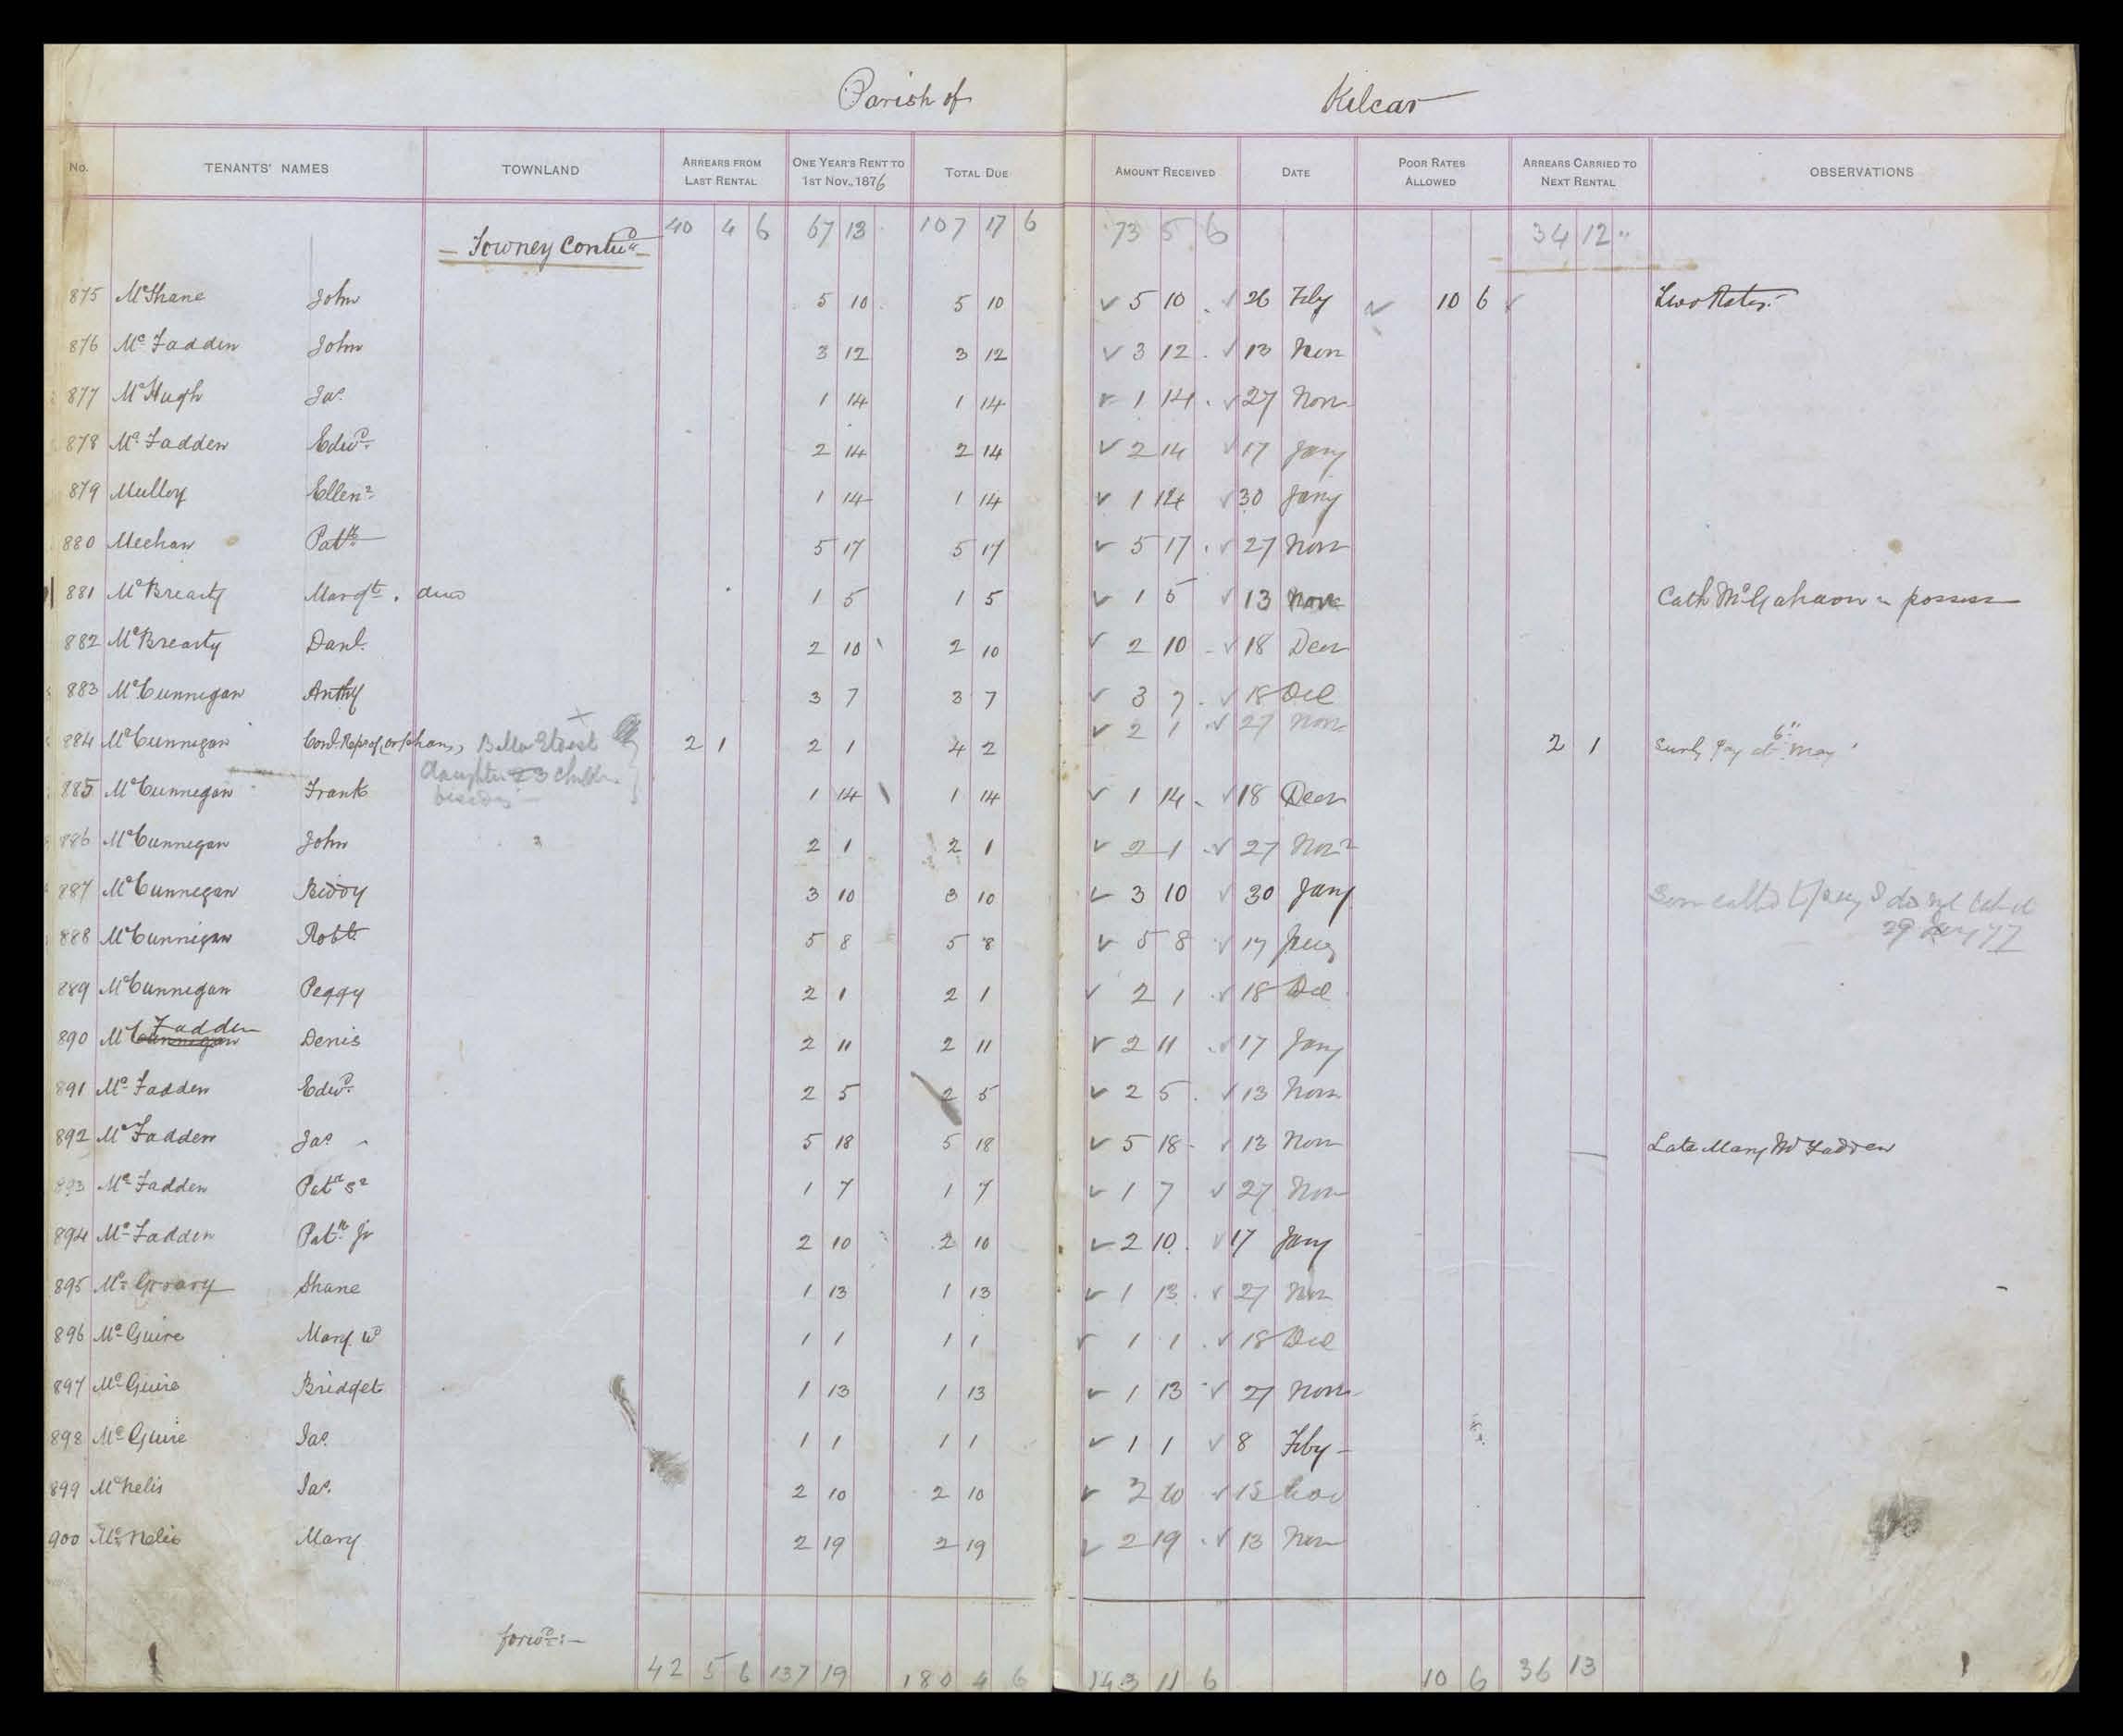 Parish of Kilcar
No. TENANTS' NAMES TOWNLAND ARREARS FROM LAST RENTAL ONE YEAR'S RENT TO 1ST NOV., 1876 TOTAL DUE AMOUNT RECEIVED DATE POOR RATES ALLOWED ARREARS CARRIED TO NEXT RENTAL OBSERVATIONS
40 4 6 67 13 107 17 6 73 5 6 34 12 "
Towney Contud
875 McShane John 5 10 5 10 5 10 26 Feby 10 6 Two Rates
876 McFadden John 3 12 3 12 3 12 13 Nov
877 McHugh Jas 1 14 1 14 1 14 27 Nov
878 McFadden Edwd 2 14 2 14 2 14 17 Jany
879 Mulloy Ellen 1 14 1 14 1 14 30 Jany
880 Meehan Patk 5 17 5 17 5 17 27 Nov
881 McBrearty Margt 1 5 1 5 1 5 13 Nov Cath McGahaon in possess
882 McBrearty Danl 2 10 2 10 2 10 18 Decr
883 McCunnegan Anthy 3 7 3 7 3 7 18 Dec
884 McCunnegan Cond. Reps of (orphans) 2 1 2 1 4 2 2 1 27 Nov 2 1 Surely Pay at 6th May
daughter 3 children
885 McCunnegan Frank 1 14 1 14 1 14 18 Decr
886 McCunnegan John 2 1 2 1 2 1 27 Nov
887 McCunnegan Biddy 3 10 3 10 3 10 30 Jany
888 McCunnegan Robt 5 8 5 8 5 8 17 Jany 29 Jany 77
889 McCunnegan Peggy 2 1 2 1 2 1 18 Dec
890 McFadden Denis 2 11 2 11 2 11 17 Jany
891 McFadden Edwd 2 5 2 5 2 5 13 Nov
892 McFadden Jas 5 18 5 18 5 18 13 Nov Late Mary McFadden
893 McFadden Patk Sr 1 7 1 7 1 7 27 Nov
894 McFadden Patk Jr 2 10 2 10 2 10 17 Jany
895 McGroary Shane 1 13 1 13 1 13 27 Nov
896 McGuire Mary Wd 1 1 1 1 1 1 18 Dec
897 McGuire Bridget 1 13 1 13 1 13 27 Nov
898 McGuire Jas 1 1 1 1 1 1 8 Feby
899 McNelis Jas 2 10 2 10 2 10 13 Nov
900 McNelis Mary 2 19 2 19 2 19 13 Nov
forwd:-
42 5 6 137 19 180 4 6 143 11 6 10 6 36 13